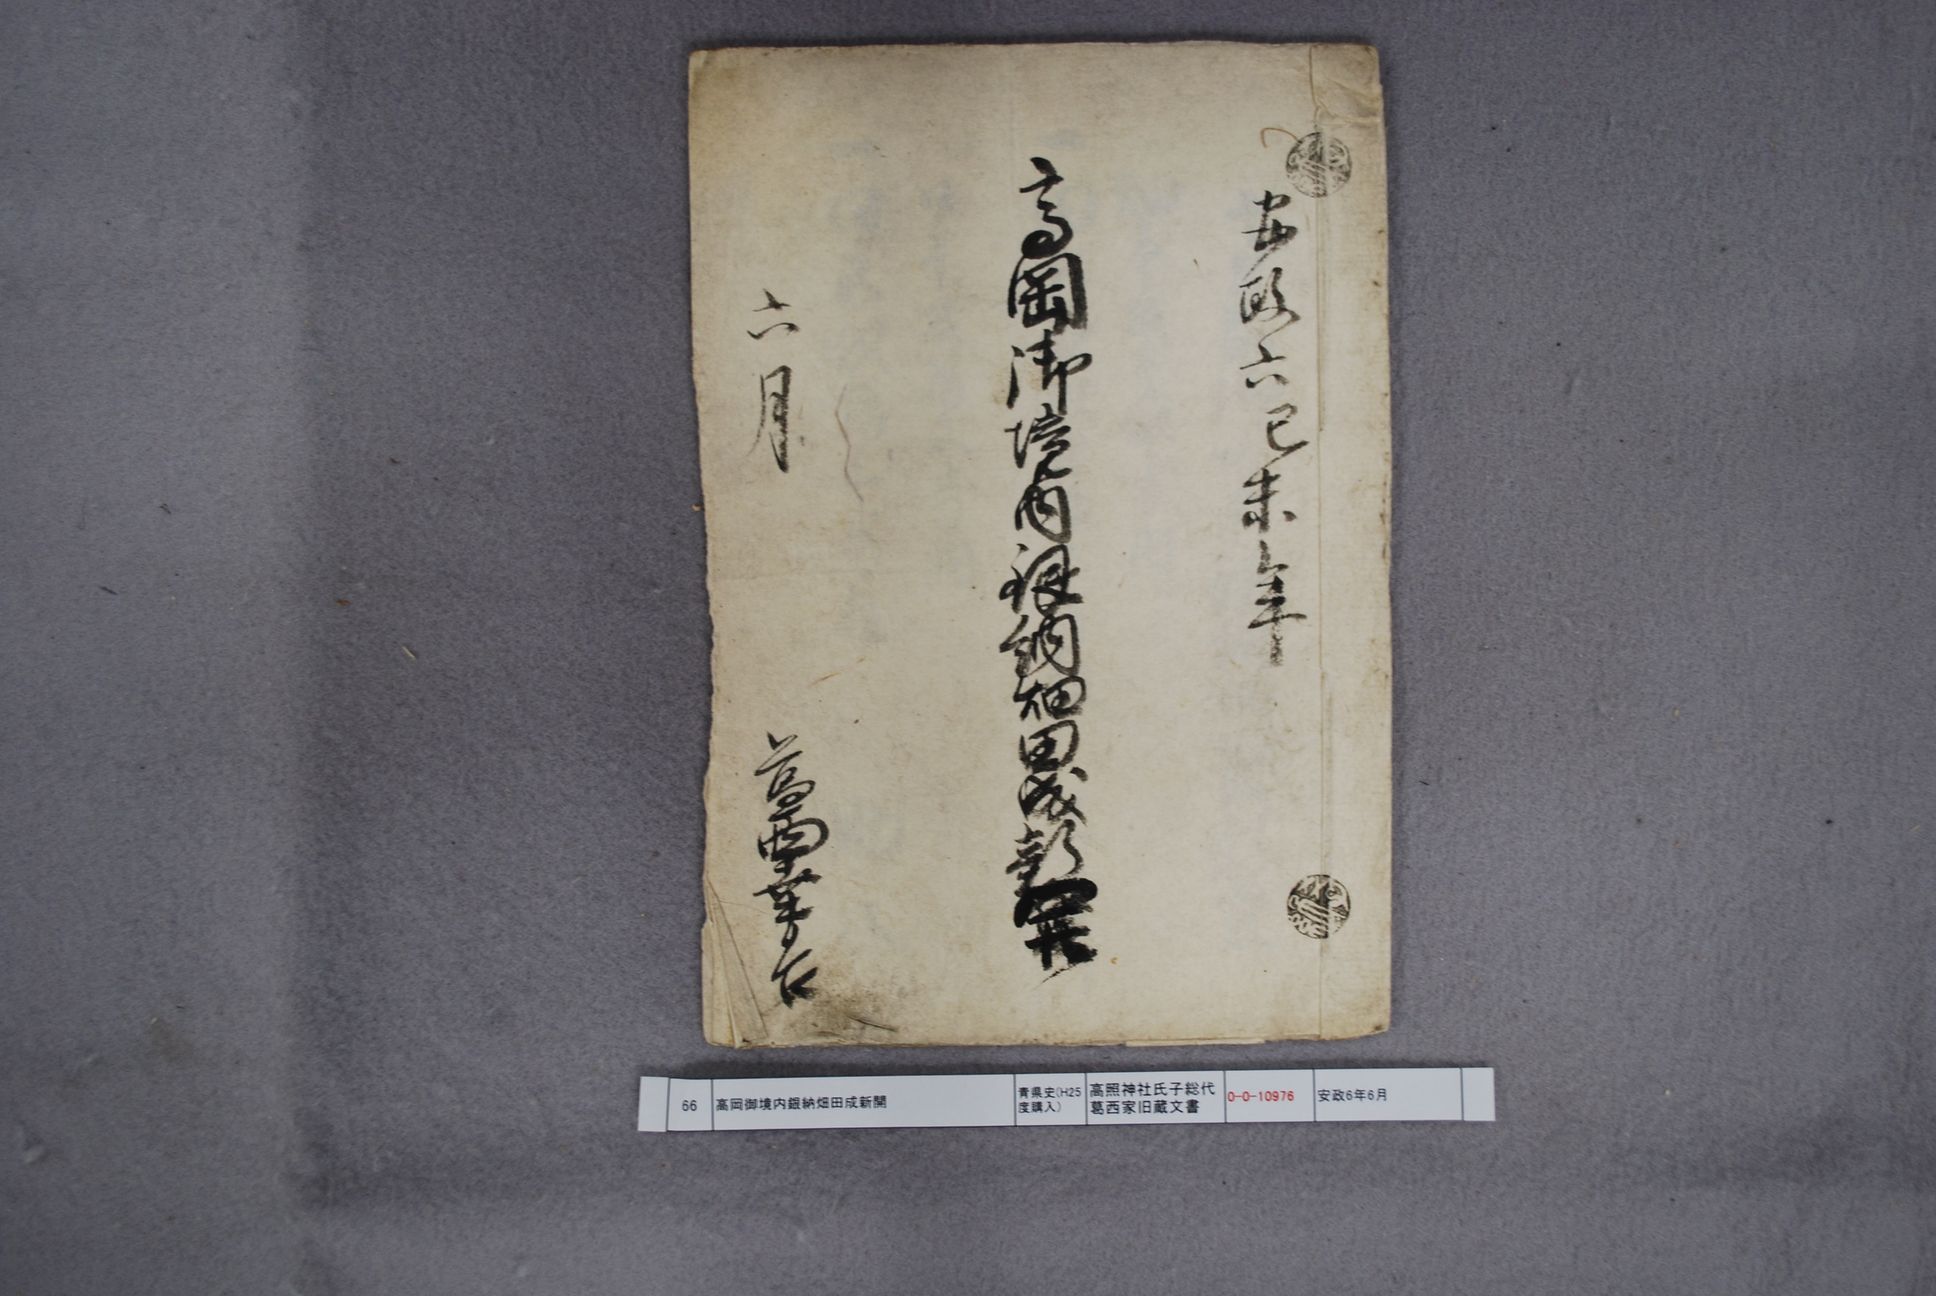 安政六己未年
高岡御境内銀納畑田成新開
六月
葛西
66
高岡御境内銀納畑田成新開
青県史(H25
度購入)
高照神社氏子総代
葛西家旧蔵文書
0-0-10976
安政6年6月